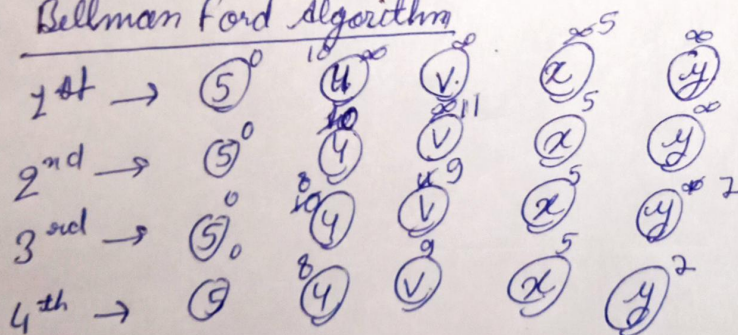 Bellman Ford Algorithm
1st → S 0 10 u ∞ v ∞ x ∞ 5 y ∞
2nd → S 0 u 10 v ∞ 11 x 5 y ∞
3rd → S 0 8 10 u v 11 9 x 5 y ∞ 7
4th → S 0 8 u v 9 x 5 y 7